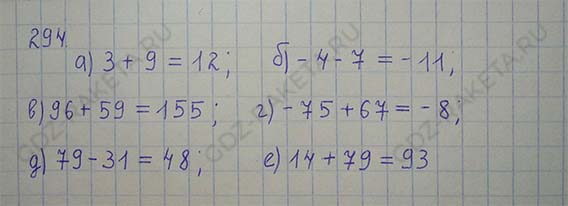 294.
а) 3 + 9 = 12; б) - 4 - 7 = - 11;
в) 96 + 59 = 155; г) - 75 + 67 = - 8;
д) 79 - 31 = 48; е) 14 + 79 = 93
GDZ-RAKETA.RU
GDZ-RAKETA.RU
GDZ-RAKETA.RU